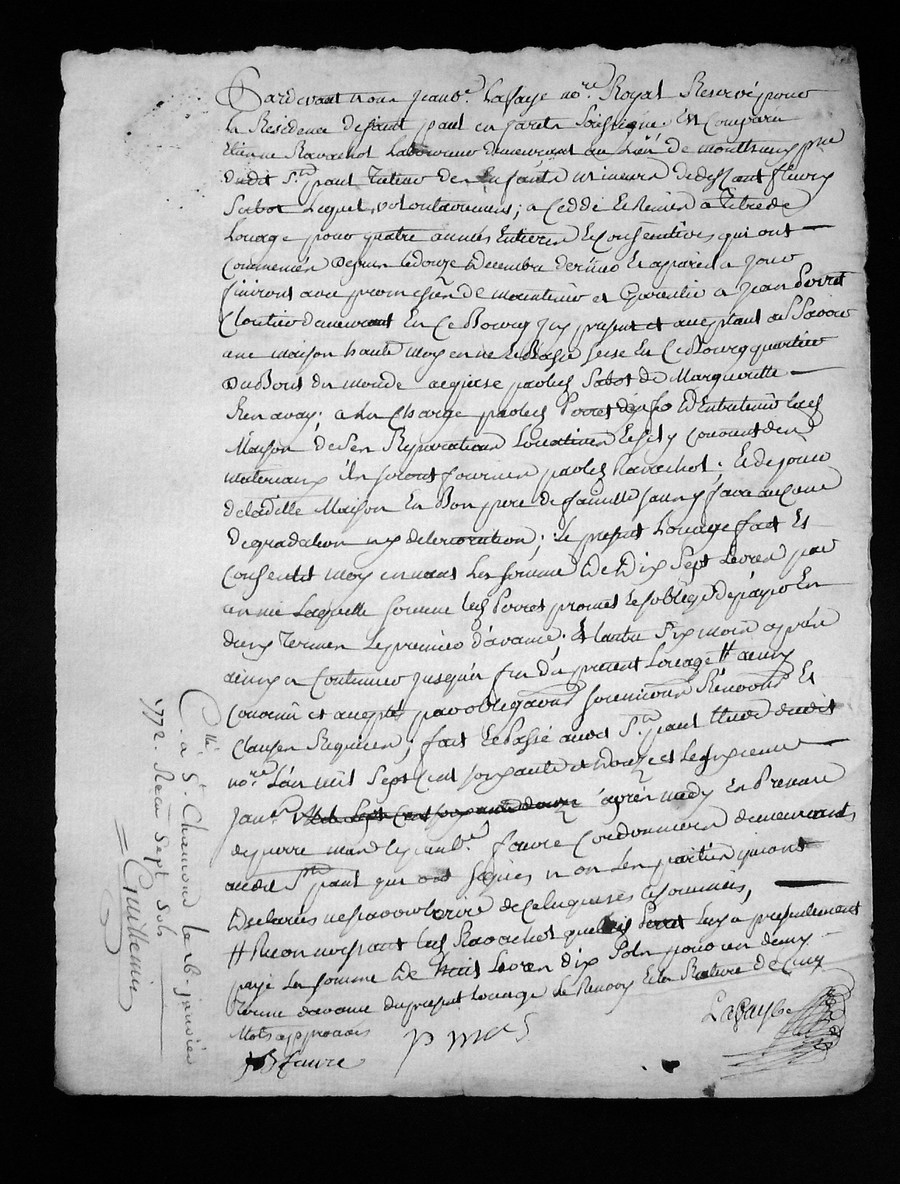 Pardevant nous Jean Bte. Lafaye nore. Royal Reservé pour
la Residence de saint paul en jarets soussigné, Est comparu
Etienne Ravachol Laboureur demeurant au Lieu de
dudit St. paul Tuteur des Enfants mineurs de deffant fleury
Sabot Lequel, volontairement; a Ceddé et Remis a titre de
Louage pour quatre années Entieres et Consecutives qui ont
Commencés Depuis le douze decembre dernier Et a pareil jour
finiront avec promesse de maintenir et Garentir a Jean Porret
Cloutier demeurant En ce Bourg Icy present et acceptant a Savoir
une maison haute moyenne et Basse sise En ce Bourg quartier
du Bout du monde acquise par led. Sabot de Marguerite
a la charge par led. Porret d'Entretenir lad.
Maison de ses Reparations Locatives Et s'il y convient des
materiaux ils seront fournis par led. Ravachol; Et de jouir
de ladite Maison En Bon pere de famille sans y faire aucune
Degradation ny deterioration; Le present Louage fait Et
Consenti moyennant la somme de dix Sept Livres par
année Laquelle somme led. Porret promet et s'oblige de payer En
deux Termes Le premier d'avance, Et l'autre six mois après
ainsy a Continuer jusqu'a fin du present Louage # ainsy
Convenu et accepté par obligations soumissions Renonces Et
Clauses Requises; fait Et Passé audit St. paul Etude dudit
nore. L'an mil Sept Cent soixante et douze et Le sixieme
janv. mil Sept Cent soixante douze après midy En Presence
de pierre et jean Bte. faure Cordonniers demeurants
audit St. paul qui ont signés non les parties qui ont
Declarés ne savoir Ecrire de ce Enquises et sommées,
# Reconnoissant led. Ravachol que led. Porret luy a presentement
payé la somme de huit Livres dix Sols pour un demy
terme d'avance du present Louage Le Renvoy Et la Rature de Cinq
Mots approuvés
Lafaye
JB faure
Cllé. a St. Chamond le 16. janvier
1772. Recu Sept Sols
Guillemin